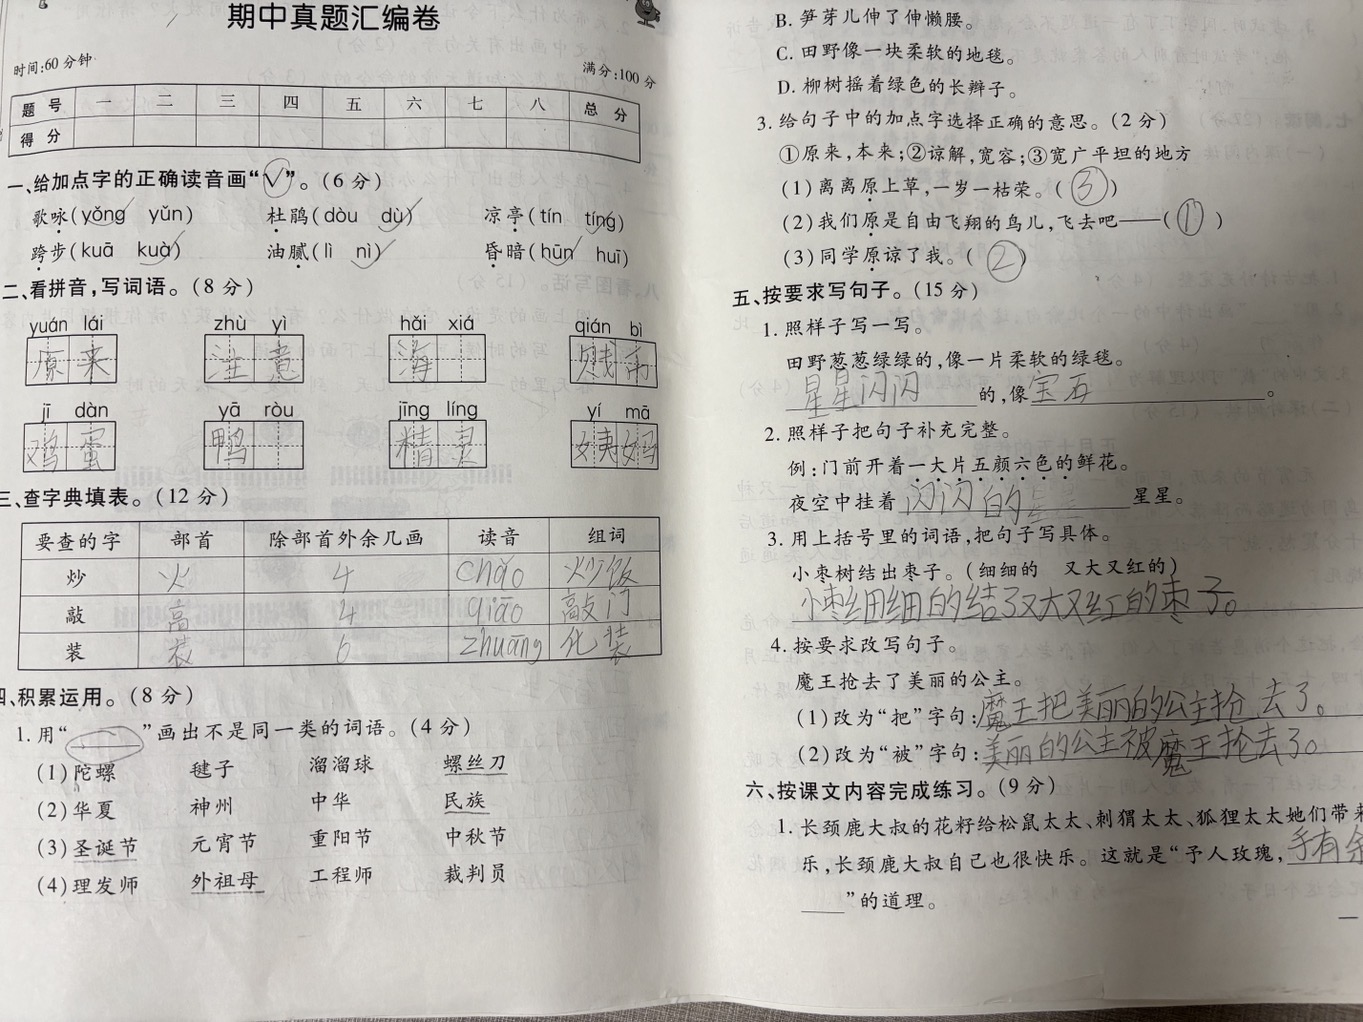 期中真题汇编卷
时间:60分钟 满分:100分
题 号 一 二 三 四 五 六 七 八 总 分
得 分
一、给加点字的正确读音画“√”。(6分)
歌咏(yǒng yǔn) 杜鹃(dòu dù) 凉亭(tín tíng)
跨步(kuā kuà) 油腻(lì nì) 昏暗(hūn huī)
二、看拼音,写词语。(8分)
yuán lái zhù yì hǎi xiá qián bì
原来 注意 海
jī dàn yā ròu jīng líng yí mā
鸡蛋 鸭 精灵 姨妈
三、查字典填表。(12分)
要查的字 部首 除部首外余几画 读音 组词
炒 火 4 chǎo 炒饭
敲 高 4 qiāo 敲门
装 6 zhuāng 化装
四、积累运用。(8分)
1.用“ ”画出不是同一类的词语。(4分)
(1)陀螺 毽子 溜溜球 螺丝刀
(2)华夏 神州 中华 民族
(3)圣诞节 元宵节 重阳节 中秋节
(4)理发师 外祖母 工程师 裁判员
B.笋芽儿伸了伸懒腰。
C.田野像一块柔软的地毯。
D.柳树摇着绿色的长辫子。
3.给句子中的加点字选择正确的意思。(2分)
①原来,本来;②谅解,宽容;③宽广平坦的地方
(1)离离原上草,一岁一枯荣。(③)
(2)我们原是自由飞翔的鸟儿,飞去吧——(①)
(3)同学原谅了我。(②)
五、按要求写句子。(15分)
1.照样子写一写。
田野葱葱绿绿的,像一片柔软的绿毯。
星星闪闪的,像宝石。
2.照样子把句子补充完整。
例:门前开着一大片五颜六色的鲜花。
夜空中挂着闪闪的星星星星。
3.用上括号里的词语,把句子写具体。
小枣树结出枣子。(细细的 又大又红的)
小枣细细的结了又大又红的枣子。
4.按要求改写句子。
魔王抢去了美丽的公主。
(1)改为“把”字句:魔王把美丽的公主抢去了。
(2)改为“被”字句:美丽的公主被魔王抢去了。
六、按课文内容完成练习。(9分)
1.长颈鹿大叔的花籽给松鼠太太、刺猬太太、狐狸太太她们带来
乐,长颈鹿大叔自己也很快乐。这就是“予人玫瑰,手有余
”的道理。